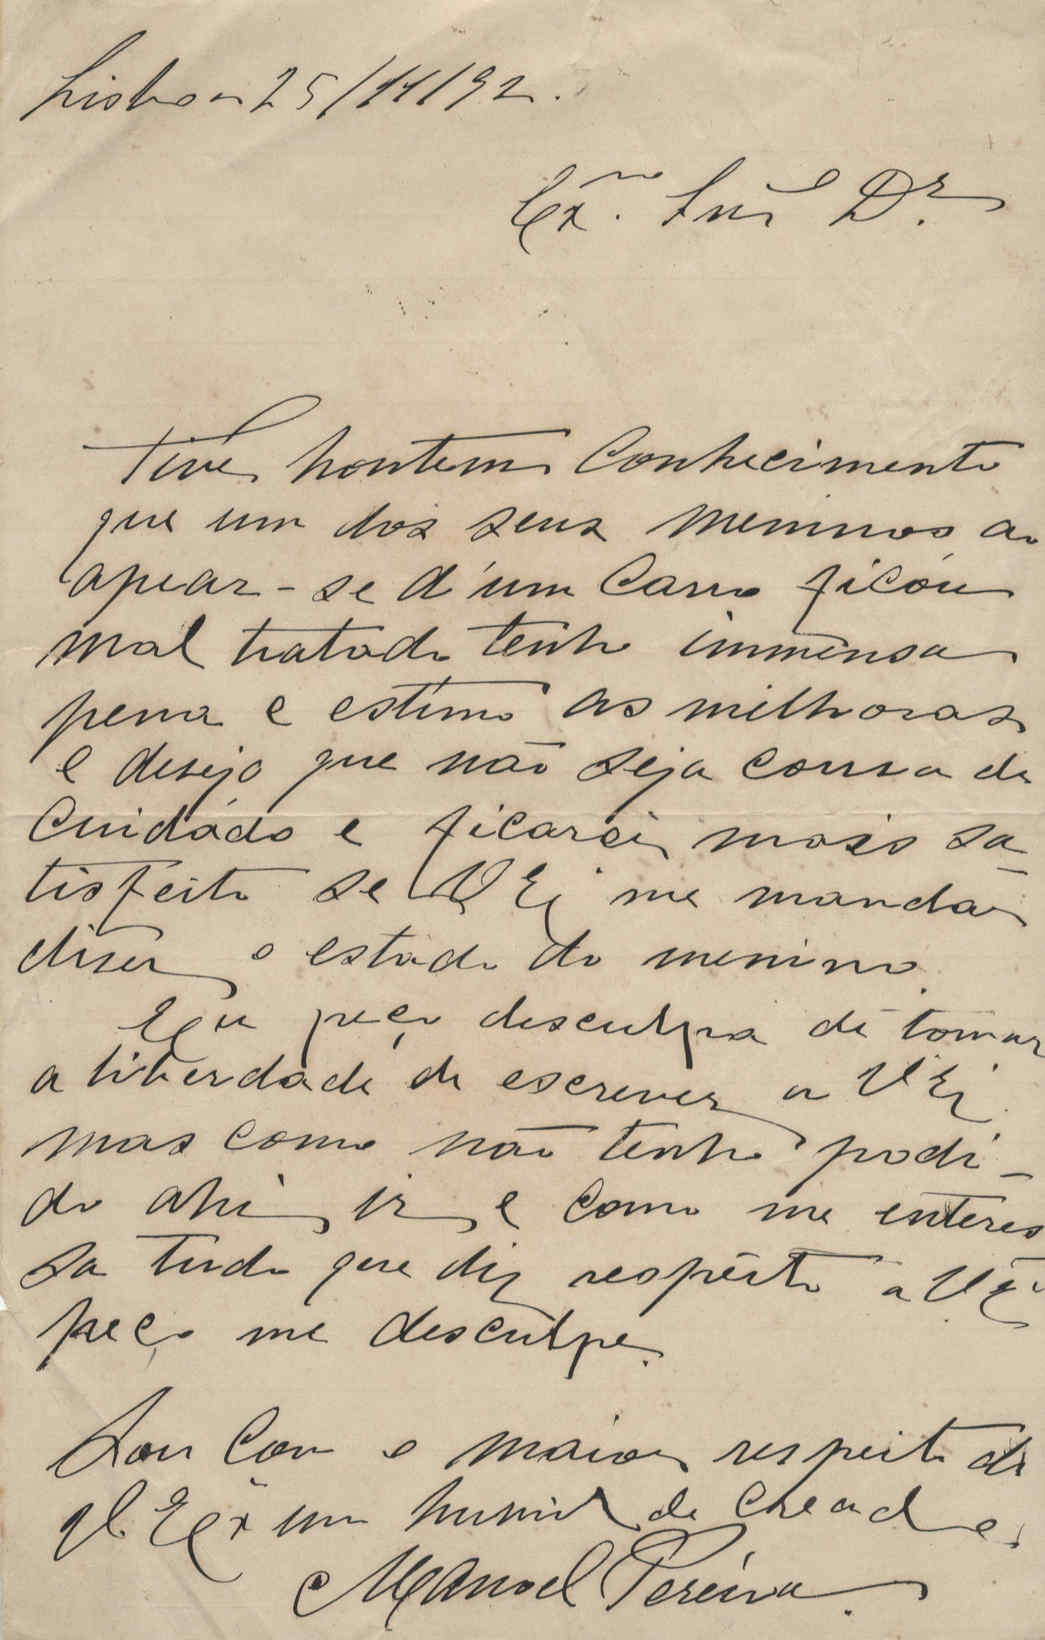 Lisboa 25/11/92.
Exmo. Snr Dr.
Tive hontem conhecimento
que um dos seus meninos ao
apear-se d'um carro ficou
mal tratado tenho immensa
pena e estimo as milhoras
e desejo que não seja cousa de
cuidádo e ficarei mais sa-
tisfeito se V Ex me mandár
diser o estado do menino.
Eu peço desculpa de tomar
a liberdade de escrever a V Ex
mas como não tenho podi-
do ahi ir e como me enteres
sa tudo que diz respeito a V Ex
peço me desculpe.
Sou com o maior respeito de
V. Ex um humilde creado
Manoel Pereira.